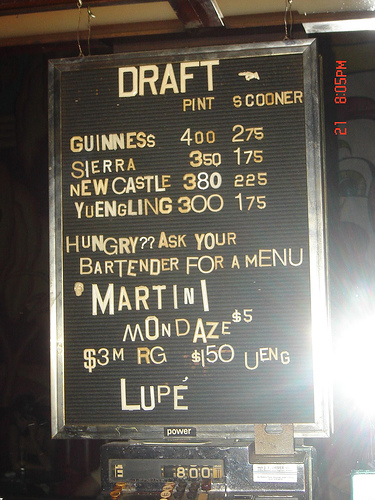 DRAFT
PINT SCOONER
GUINNESS 400 275
SIERRA 350 175
NEWCASTLE 380 225
YUENGLING 300 175
HUNGRY?? ASK YOUR
BARTENDER FOR A MENU
MARTINI
MONDAZE $5
$3 MRG $150 UENG
LUPÉ
power
8:00
21 8:05PM